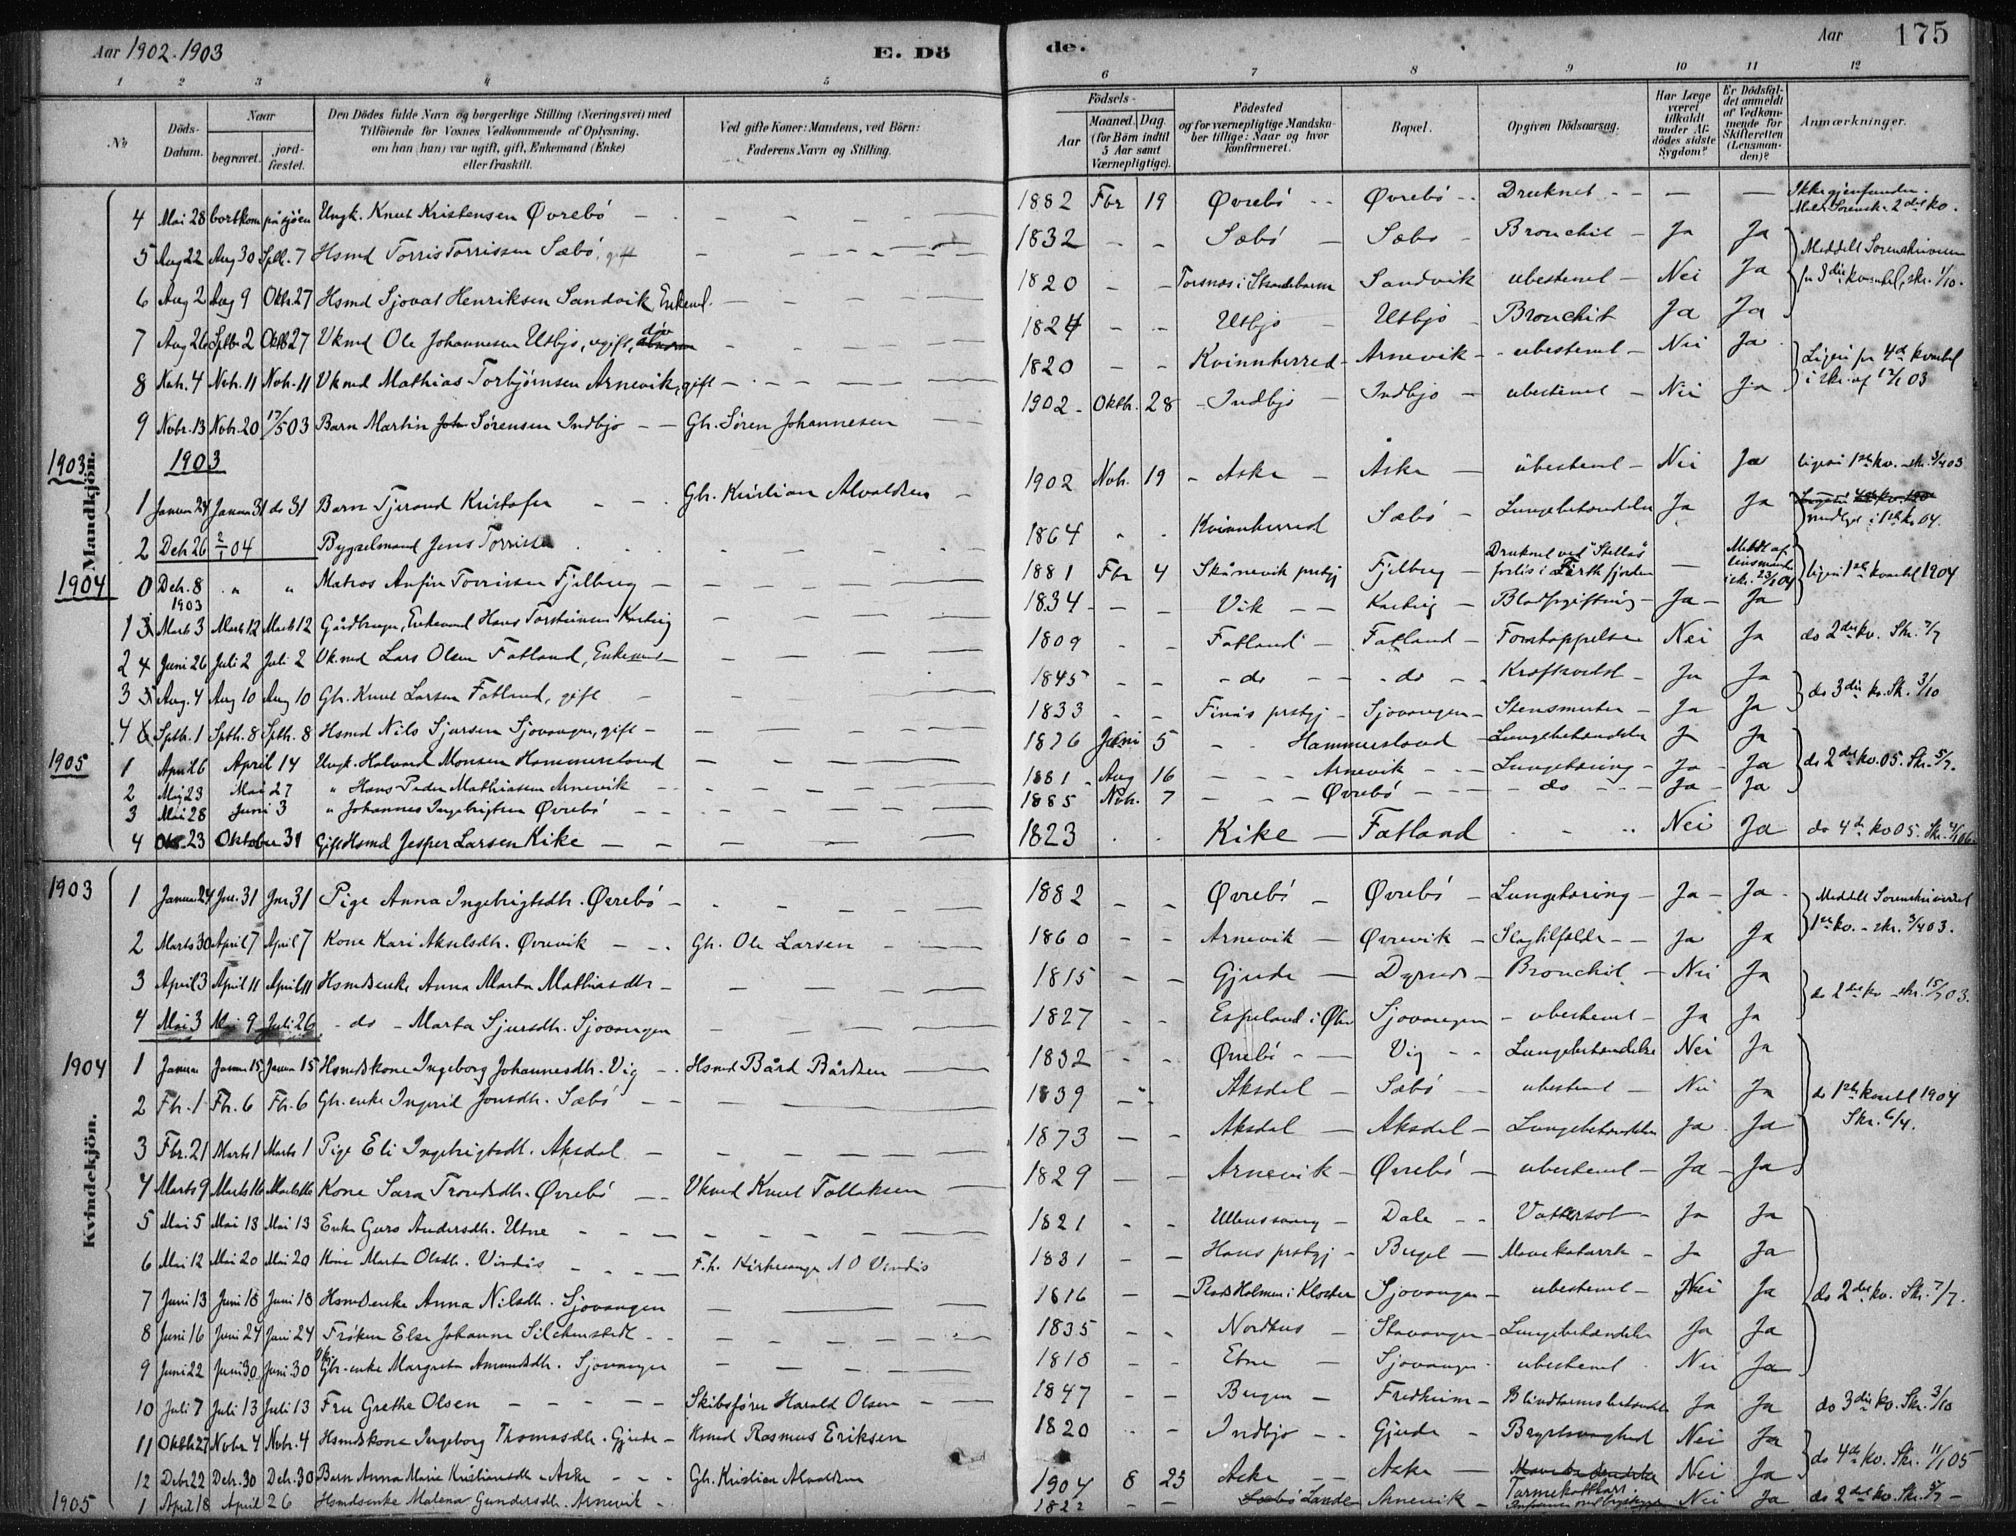 Aar 1902.1903
E. Döde.
Aar 175
1 2 3 4 5 6 7 8 9 10 11 12
No
Döds-Datum.
Naar
begravet.
jordfæstet.
Den Dödes fulde Navn og borgerlige Stilling (Næringsvei) med
Tilföiende for Voxnes Vedkommende af Oplysning,
om han (hun) var ugift, gift, Enkemand (Enke)
eller fraskilt.
Ved gifte Koner: Mandens, ved Börn:
Faderens Navn og Stilling.
Födsels-
Aar
Maaned. Dag.
(for Börn indtil
5 Aar samt
Værnepligtige).
Födested
og for værnepligtige Mandskaber tillige: Naar og hvor
konfirmeret.
Bopæl.
Opgiven Dödsaarsag.
Har Læge
været
tilkaldt
under Afdödes sidste
Sygdom?
Er Dödsfaldet anmeldt
af Vedkommende for
Skifteretten
(Lensmanden)?
Anmærkninger.
Mandkjön.
4 Mai 28 bortkom på sjøen Ungk. Knut Kristensen Øvrebö 1882 Fbr 19 Øvrebö Øvrebö Druknet Ikke gjenfunden.
5 Aug 22 Aug 30 Sptb. 7 Hsmd Torris Torrissen Sæbö, gift 1832 Sæbö Sæbö Bronchit Ja Ja
6 Aug 2 Aug 9 Oktb. 27 Hsmd Sjovat Henriksen Sandvik Enkemd. 1820 Torsnæs i Strandebarm Sandvik ubestemt Nei Ja
7 Aug 26 Sptbr 2 Oktb 27 Vkmd Ole Johannesen Utbjo, ugift, döv 1824 Utbjo Utbjo Bronchit Ja Ja
8 Nvb. 4 Nvb. 11 Nvb. 11 Vkmd Mathias Torbjørnsen Arnevik, gift 1820 Kvinnherred Arnevik ubestemt Nei Ja Ligesaa for 4de kvartal
9 Nvbr. 13 Nvbr. 20 17/5 03 Barn Martin Sørensen Indbjo Gbr. Søren Johannesen 1902 Oktb. 28 Indbjo Indbjo ubestemt Nei Ja
1903 1903
1 Januar 24 Januar 31 do 31 Barn Tjerand Kristofer Gbr. Kristian Alvaldsen 1902 Nvb. 19 Aske Aske ubestemt Nei Ja
2 Deb. 26 2/1 04 Bygselmand Jens Torrissen 1864 Kvinnherred Sæbö Lungebetændelse Ja Ja
1904 0 Deb. 8 1903 " " Matros Anfin Torrissen Fjelberg 1881 Fbr 4 Skånevik prstgj Fjelberg Druknet ved "Stellas" forlis i Firth fjorden ligesaa 1ste kvartal 1904
1 3 Marts 3 Marts 12 Marts 12 Gårdbruger, Enkemand Hans Torsteinsen 1834 Vik Blodforgiftning Ja Ja
2 4 Juni 26 Juli 2 Juli 2 Vkmd Lars Olsen Fatland, Enkemand 1809 Fatland Fatland Forstoppelse Nei Ja do 2det kv. Skr. 7/7
3 5 Aug. 4 Aug 10 Aug 10 Gbr. Knut Larsen Fatland, gift 1845 do do Kræftsvulst Ja Ja do 3die kv. Sk. 3/10
4 6 Sptb. 1 Sptb. 8 Sptb. 8 Hsmd Nils Sjursen Sjovangen, gift 1833 Finås prstgj Sjovangen Stensmerter Ja Ja
1905 1 April 6 April 14 Ungk. Halvard Monsen Hammersland 1876 Juni 5 Hammersland Lungebetændelse Ja Ja
2 Mai 23 Mai 27 " Hans Peder Mathiasen Arnevik 1881 Aug 16 Arnevik Lungetæring Ja Ja do 2det kv. 05. Skr. 5/7.
3 Mai 28 Juni 3 " Johannes Ingebrigtsen Øvrebö 1885 Nvb. 7 Øvrebö do Ja Ja
4 Okt. 23 Oktober 31 Gift Hsmd Jesper Larsen Kike 1823 Kike Fatland " Nei Ja do 4de kv 05.
Kvindekjön.
1903 1 Januar 24 Jnr. 31 Jnr 31 Pige Anna Ingebrigtsdtr. Øvrebö 1882 Øvrebö Øvrebö Lungetæring Ja Ja
2 Marts 30 April 7 April 7 Kone Kari Akselsdtr. Øvrevik Gbr. Ole Larsen 1860 Arnevik Øvrevik Slagtilfælde Ja Ja 1ste kv. skr. 3/4 03.
3 April 3 April 11 April 11 Hsmdsenke Anna Marta Mathiasdtr 1815 Gjude Bronchit Nei Ja
4 Mai 3 Mai 9 Juli 26 do Marta Sjursdtr. Sjovangen 1827 Espeland i Ølen Sjovangen ubestemt Ja Ja do 2det kv skr. 15/7 03.
1904 1 Januar Januar 15 Januar 15 Hsmdskone Ingeborg Johannesdtr. Vig Hsmd Bård Bårdsen 1832 Øvrebö Vig Lungebetændelse Nei Ja
2 Fbr. 1 Fbr. 6 Fbr. 6 Gbr. enke Ingrid Jonsdtr. Sæbö 1839 Aksdal Sæbö ubestemt Nei Ja do 1ste kvartal 1904
Skr. 6/4.
3 Fbr. 21 Marts 1 Marts 1 Pige Eli Ingebrigtsdtr. Aksdal 1873 Aksdal Aksdal Lungebetændelse Ja Ja
4 Marts 9 Marts 16 Marts 16 Kone Sara Trondsdtr. Øvrebö Vkmd Knut Tollaksen 1829 Arnevik Øvrebö ubestemt Ja Ja
5 Mai 5 Mai 13 Mai 13 Enke Guro Andersdtr. Utne 1821 Ullensvang Dale Vattersot Ja Ja
6 Mai 12 Mai 20 Mai 20 Kone Marta Olsdtr. Vindis F.h. Kirkesanger A O Vindis 1831 Hans prstgj Mavekatarrh Ja Ja
7 Juni 13 Juni 18 Juni 18 Hsmdsenke Anna Nilsdtr. Sjovangen 1816 Plads Holmen i Kloster Sjovangen ubestemt Nei Ja do 2det kv. Skr. 7/7.
8 Juni 16 Juni 24 Juni 24 Frøken Else Johanne Silchenstedt 1835 Nordhus Stavanger Lungebetændelse Ja Ja
9 Juni 22 Juni 30 Juni 30 Gbr. enke Margreta Amundsdtr. Sjovangen 1818 Etne Sjovangen ubestemt Nei Ja
10 Juli 7 Juli 13 Juli 13 Fru Grethe Olsen Skibsfører Harald Olsen 1847 Bergen Fredheim Blindtarmsbetændelse Ja Ja do 3die kv. Skr. 3/10
11 Oktb 27 Nvbr. 4 Nvbr. 4 Hsmdskone Ingeborg Thomasdtr. Gjude Hsmd Rasmus Eriksen 1820 Indbjo Gjude Brystsvaghed Nei Ja
12 Debr 22 Deb. 30 Deb. 30 Barn Anna Marie Kristiansdtr Aske Gbr. Kristian Alvaldsen 1904 8 23 Aske Aske Tarmekatharr Nei Ja do 4de kv. Skr. 11/1 05
1905 1 April 18 April 26 Hsmdsenke Malena Gundersdtr. Arnevik 1822 Lande Arnevik Nei Ja do 2det kv. Skr. 5/7